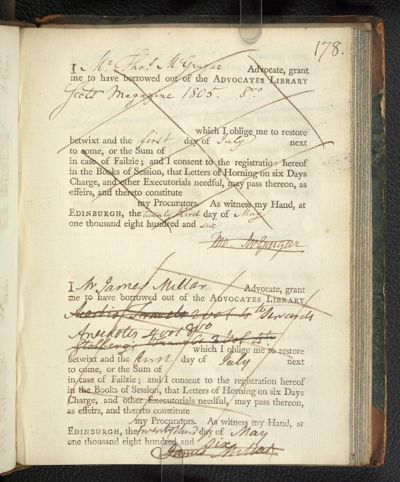 178.
I Mr Thos. McGrugar Advocate, grant
me to have borrowed out of the ADVOCATES LIBRARY
Scots Magazine 1805. 8vo
which I oblige me to restore
betwixt and the first day of July next
to come, or the Sum of
in case of Failzie; and I consent to the registration hereof
in the Books of Session, that Letters of Horning on six Days
Charge, and other Executorials needful, may pass thereon, as
effeirs, and thereto constitute
my Procurators. As witness my Hand, at
EDINBURGH, the twenty third day of May
one thousand eight hundred and six
Tho. McGrugar
I Mr James Millar Advocate, grant
me to have borrowed out of the ADVOCATES LIBRARY
2 vol 4to Sewards
Anecdotes 4 vol 8vo
3 vol
which I oblige me to restore
betwixt and the first day of July next
to come, or the Sum of
in case of Failzie; and I consent to the registration hereof
in the Books of Session, that Letters of Horning on six Days
Charge, and other Executorials needful, may pass thereon,
as effeirs, and thereto constitute
my Procurators. As witness my Hand, at
EDINBURGH, the twenty third day of May
one thousand eight hundred and six
James Millar